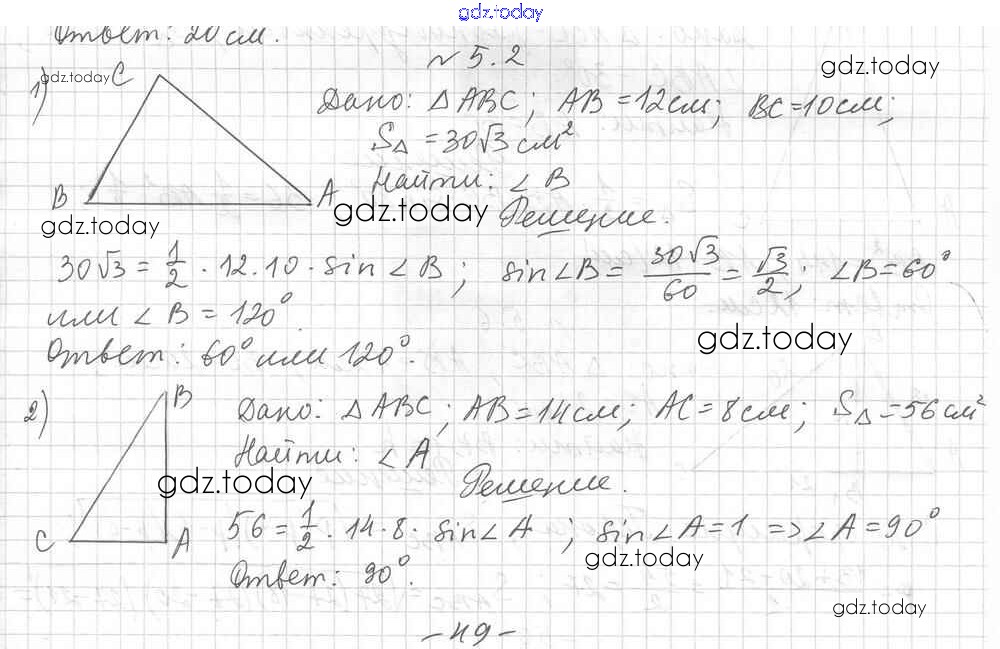 gdz.today
Ответ: 20 см.
№ 5.2
gdz.today
1)
C
B
A
Дано: △ABC; AB = 12см; BC = 10см;
S△ = 30√3 см²
Найти: ∠B
Решение.
gdz.today
gdz.today
gdz.today
30√3 = 1/2 · 12 · 10 · sin∠B; sin∠B = 30√3/60 = √3/2; ∠B = 60°
или ∠B = 120°.
gdz.today
Ответ: 60° или 120°.
2)
B
C
A
Дано: △ABC; AB = 14см; AC = 8см; S△ = 56см²
Найти: ∠A
gdz.today
Решение.
56 = 1/2 · 14 · 8 · sin∠A; sin∠A = 1 => ∠A = 90°
gdz.today
Ответ: 90°.
gdz.today
- 49 -